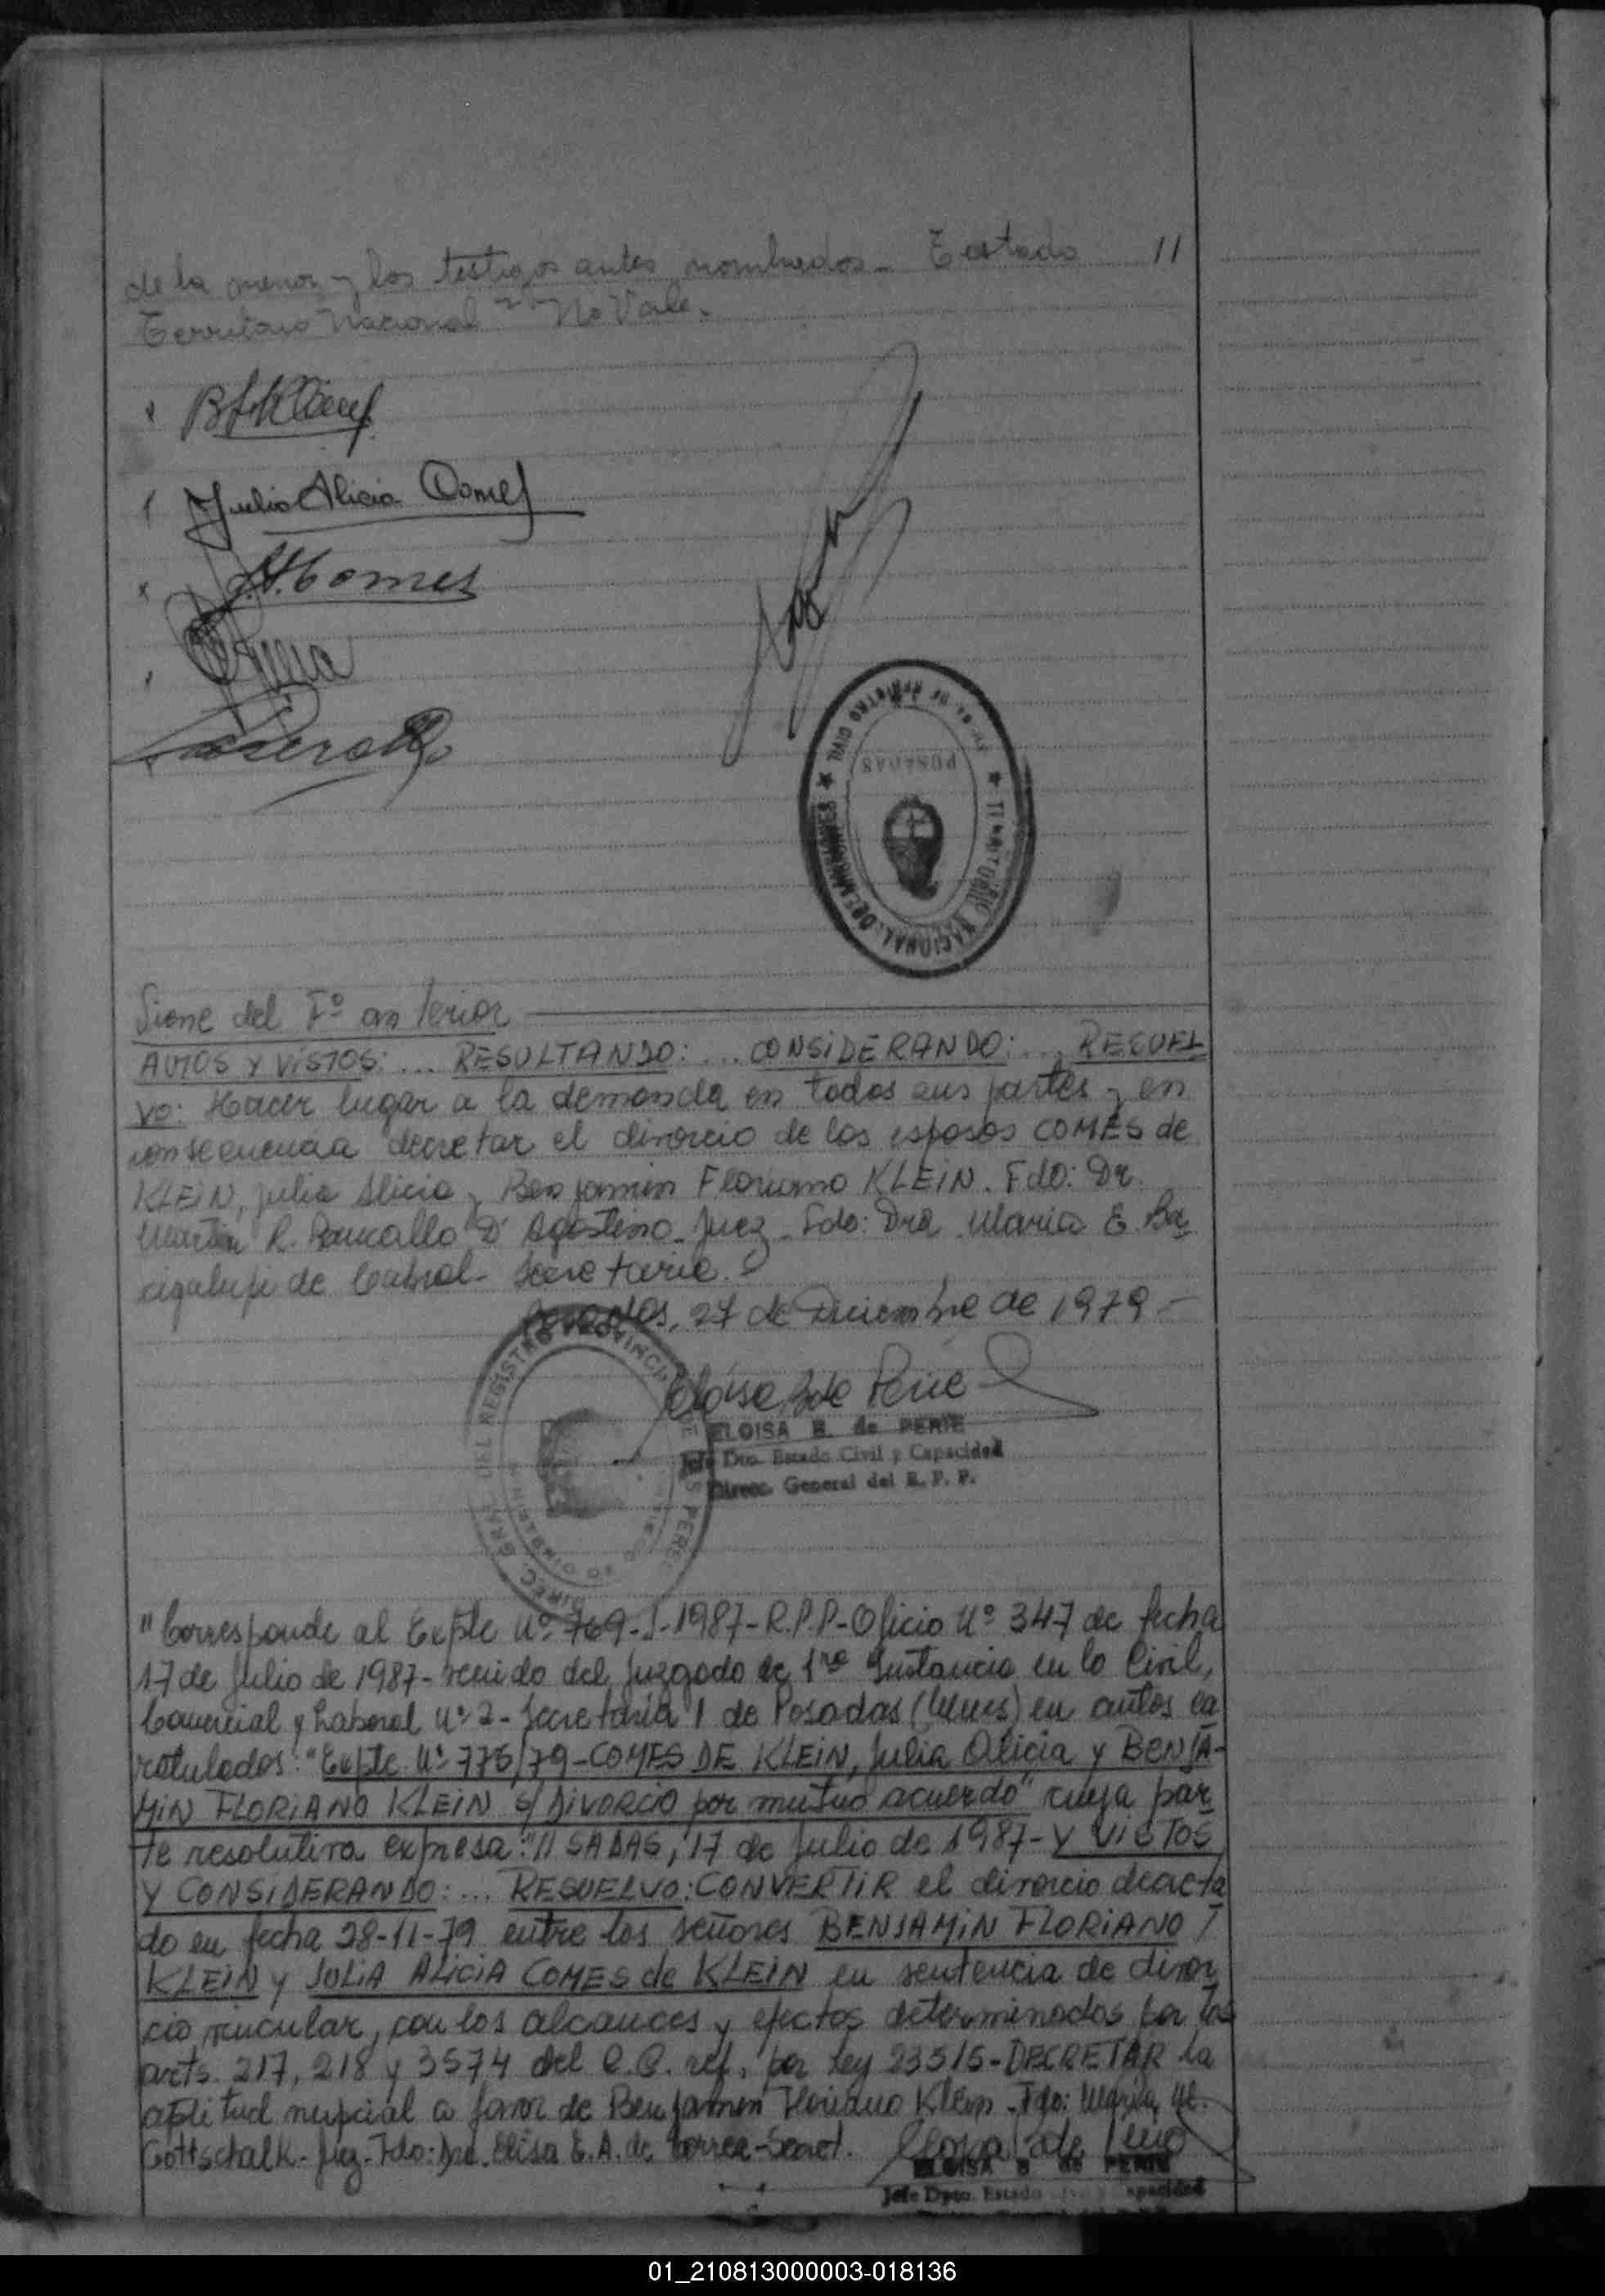 de la menor y los testigos antes nombrados - Testado 11
Territorio Nacional - No Vale.
B F Klein
Julia Alicia Comes
Comes
POSADAS
TERRITORIO NACIONAL DE MISIONES
REGISTRO CIVIL
Viene del Fº anterior
AUTOS Y VISTOS: ... RESULTANDO: ... CONSIDERANDO: ... RESUEL
VO: Hacer lugar a la demanda en todos sus partes y en
consecuencia decretar el divorcio de los esposos COMES de
KLEIN, Julia Alicia y Benjamin Floriano KLEIN. Fdo: Dr.
Martin R. D' Agostino - Juez - Fdo: Dra. Maria E. Ba
cigalupi de Cabral - Secretaria.
Posadas, 27 de Diciembre de 1979 -
ELOISA B. de PERIE
Jefe Dto. Estado Civil y Capacidad
Direcc. General del R. P. P.
DIREC. GRAL. DEL REGISTRO PROVINCIAL DE LAS PERS
"Corresponde al Expte Nº 769-J-1987-R.P.P-Oficio Nº 347 de fecha
17 de Julio de 1987- venido del Juzgado de 1ra Instancia en lo Civil,
Comercial y Laboral Nº 2 - Secretaria 1 de Posadas (Mnes) en autos ca
ratulados: "Expte. Nº 776/79-COMES DE KLEIN, Julia Alicia y BENJA-
MIN FLORIANO KLEIN s/ DIVORCIO por mutuo acuerdo" cuya par
te resolutiva expresa: "//SADAS, 17 de Julio de 1987- Y VISTOS
Y CONSIDERANDO: ... RESUELVO: CONVERTIR el divorcio decreta
do en fecha 28-11-79 entre los señores BENJAMIN FLORIANO /
KLEIN y JULIA ALICIA COMES de KLEIN en sentencia de divor
cio vincular, con los alcances y efectos determinados por los
arts. 217, 218 y 3574 del C.C. ref. por Ley 23515-DECRETAR la
aptitud nupcial a favor de Benjamin Floriano Klein - Fdo: Maria M.
Gottschalk - Juez - Fdo: Dra. Elisa E. A. de Correa - Secret.
ELOISA B de PERIE
Jefe Dpto. Estado Civil y Capacidad
01_210813000003-018136